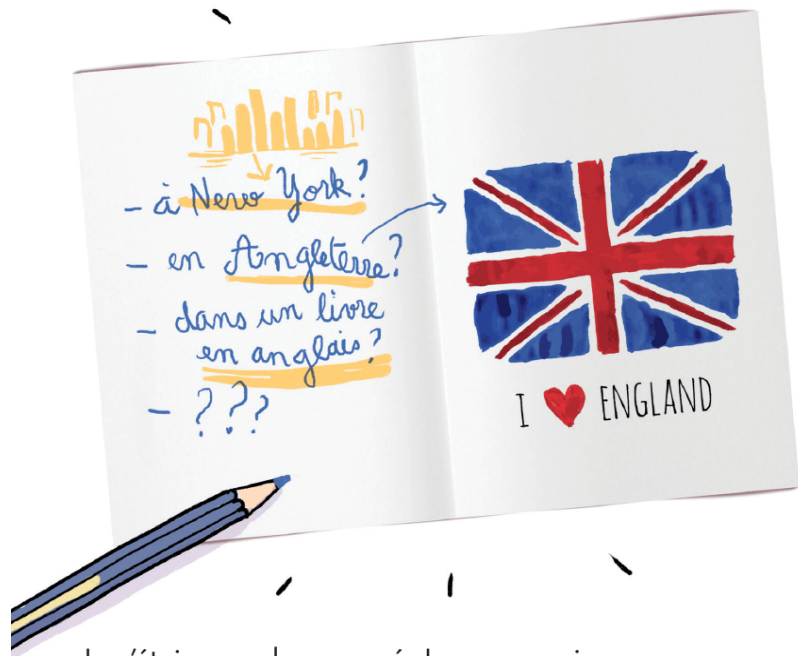 - à New York?
- en Angleterre?
- dans un livre
en anglais?
- ???
I ❤ ENGLAND